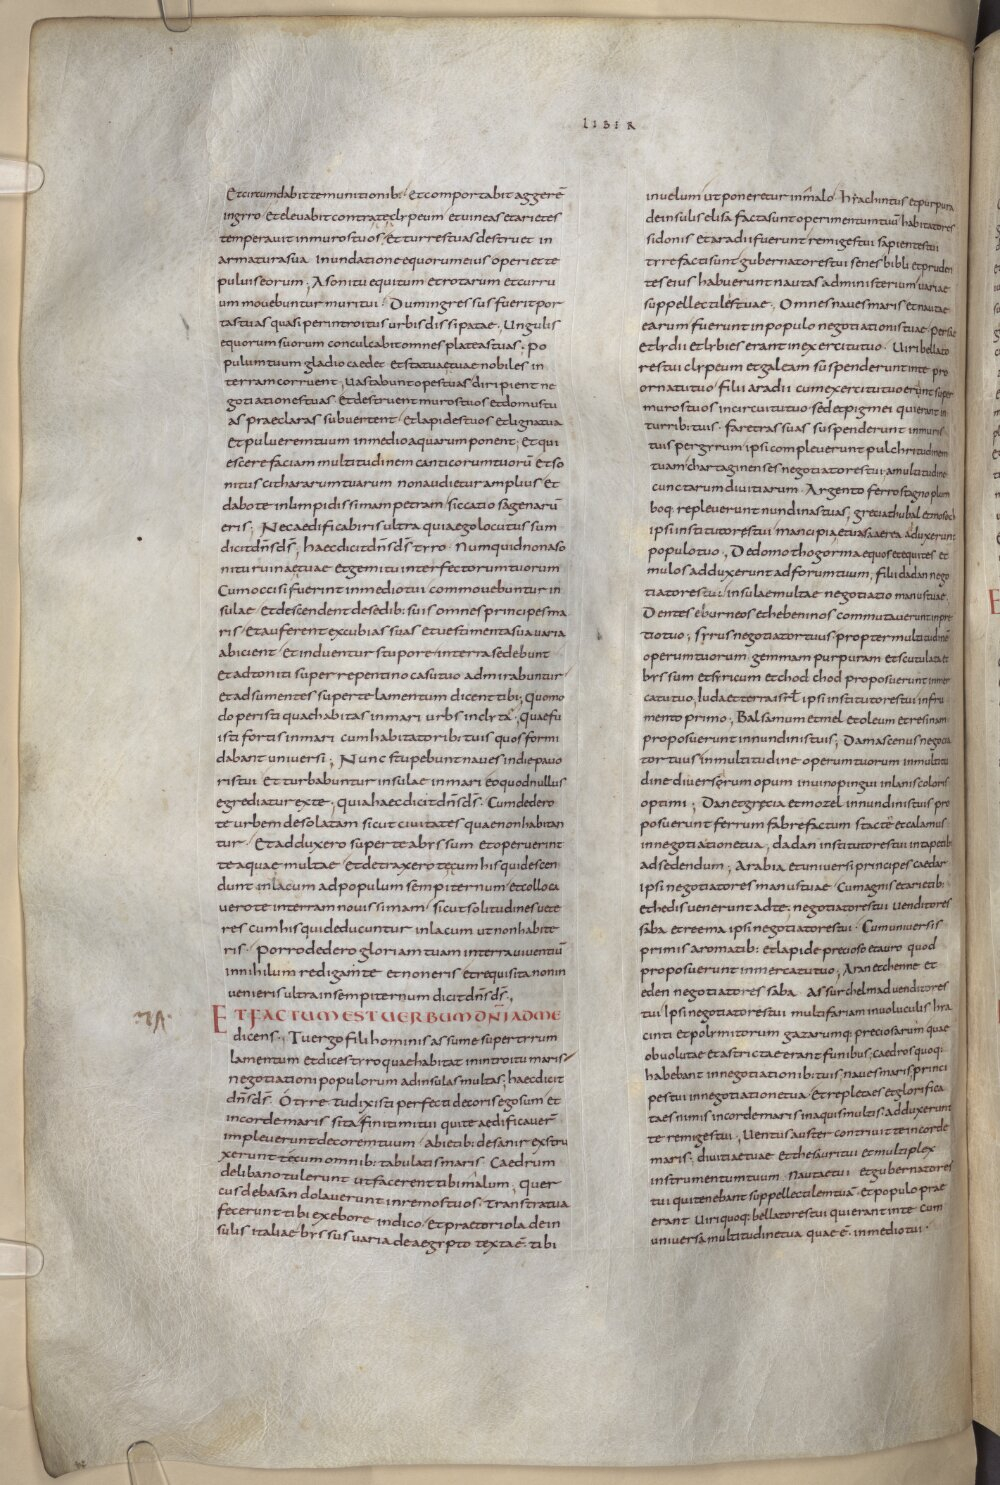 LIBER
Et circumdabit te munitionib: Et comportabit aggerē
ingyro Et elevabit contra te clypeum et vineas et arietes
temperavit in muros tuos Et turres tuas destruet in
armatura sua Inundatione equorum eius operiet te
pulvis eorum; A sonitu equitum et rotarum et curru
um movebuntur muri tui Dum ingressus fuerit por
tas tuas quasi per introitus urbis dissipatae; Ungulis
equorum suorum conculcabit omnes plateas tuas; po
pulum tuum gladio caedet et statuae tuae nobiles in
terram corruent; vastabunt opes tuas diripient ne
gotiationes tuas Et destruent muros tuos et domus tu
as praeclaras subvertent Et lapides tuos et ligna tua
Et pulverem tuum in medio aquarum ponent; Et qui
escere faciam multitudinem canticorum tuorū Et so
nitus cithararum tuarum non audietur amplius Et
dabo te in limpidissimam petram siccatio sagenarū
eris; Nec aedificaberis ultra quia ego locutus sum
dicit dn̄s ds̄; haec dicit dn̄s ds̄ tyro Numquid non a so
nitu ruinae tuae et gemitu interfectorum tuorum
Cum occisi fuerint in medio tui commovebuntur in
sulae Et descendent de sedib: suis omnes principes ma
ris Et auferent excubias suas et vestimenta sua varia
abicient Et induentur stupore in terra sedebunt
et adtoniti super repentino casu tuo admirabuntur
et adsumentes super te lamentum dicent tibi; Quomo
do peristi quae habitas in mari urbs inclyta; quae fu
isti fortis in mari cum habitatorib: tuis quos formi
dabant universi; Nunc stupebunt naves in die pavo
ris tui Et turbabuntur insulae in mari eo quod nullus
egrediatur ex te quia haec dicit dn̄s ds̄ Cum dedero
te urbem desolatam sicut civitates quae non habitan
tur Et adduxero super te abyssum et operuerint
te aquae multae Et detraxero te cum his qui descen
dunt in lacum ad populum sempiternum et colloca
vero te in terram novissimam sicut solitudines vete
res cum his qui deducuntur in lacum ut non habite
ris Porro dedero gloriam tuam in terra viventiū
in nihilum redigam te et non eris et requisita non in
venieris ultra in sempiternum dicit dn̄s ds̄;
ET FACTUM EST VERBUM DN̄I AD ME
dicens; Tu ergo fili hominis assume super tyrum
lamentum et dices tyro quae habitat in introitu maris
negotiationi populorum ad insulas multas; haec dicit
dn̄s ds̄ O tyre tu dixisti perfecti decoris ego sum et
in corde maris sita finitimi tui qui te aedificaverunt
impleverunt decorem tuum abietib: de sanir exstru
xerunt te cum omnib: tabulatis maris Caedrum
de libano tulerunt ut facerent tibi malum; quer
cus de basan dolaverunt in remos tuos Transtra tua
fecerunt tibi ex ebore indico Et praetoriola de in
sulis italiae byssus varia de aegypto textae tibi
in velum ut poneretur in malo hyachintus et purpura
de insulis elisa facta sunt operimentum tuū habitatores
sidonis et aradii fuerunt remiges tui sapientes tui
tyre facti sunt gubernatores tui senes bibli et pruden
tes eius habuerunt nautas ad ministerium variae
suppellectiles tuae; Omnes naves maris et nautae
earum fuerunt in populo negotiationis tuae persae
et lydii et lybies erant in exercitu tuo Viri bellato
res tui clypeum et galeam suspenderunt in te pro
ornatu tuo filii aradii cum exercitu tuo erunt super
muros tuos in circuitu tuo sed et pigmei qui erant in
turrib: tuis faretras suas suspenderunt in muris
tuis per gyrum ipsi compleverunt pulchritudinem
tuam chartaginenses negotiatores tui a multitudine
cunctarum divitiarum Argento ferro stagno plum
boq; repleverunt nundinas tuas; grecia thubal et mosoch
ipsi institutores tui mancipia et vasa aerea adduxerunt
populo tuo; De domo thogorma equos et equites et
mulos adduxerunt ad forum tuum; filii dadan nego
tiatores tui insulae multae negotiatio manus tuae
Dentes eburneos et hebeninos commutaverunt in pre
tio tuo; syrus negotiator tuus propter multitudinē
operum tuorum gemmam purpuram et scutulata et
byssum et syricum et chodchod proposuerunt in mer
catu tuo; Iuda et terra isrl ipsi institutores tui in fru
mento primo; Balsamum et mel et oleum et resinam
proposuerunt in nundinis tuis; Damascenus negotia
tor tuus in multitudine operum tuorum in multitu
dine diversorum opum in vino pingui in lanis coloris
optimi; Dan et grecia et mozel in nundinis tuis pro
posuerunt ferrum fabrefactum stacte et calamus
in negotiatione tua; dadan institutores tui in tapetib:
ad sedendum; Arabia et universi principes caedar
ipsi negotiatores manus tuae Cum agnis et arietib:
et hedis venerunt ad te negotiatores tui venditores
saba et reema ipsi negotiatores tui Cum universis
primis aromatib: et lapide precioso et auro quod
proposuerunt in mercatu tuo; Aran et chenne et
eden negotiatores saba Assur chelmad venditores
tui Ipsi negotiatores tui multifariam involucuilis hya
cinti et polymitorum gazarumq; preciosarum quae
obvolutae et astrictae erant funibus; caedros quoq:
habebant in negotiationib: tuis naves maris princi
pes tui in negotiatione tua Et repleta es et glorifica
ta es nimis in corde maris in aquis multis adduxerunt
te remiges tui; Ventus auster contrivit te in corde
maris divitiae tuae et thesauri tui et multiplex
instrumentum tuum Nautae tui et gubernatores
tui qui tenebant suppellectilem tuā et populo prae
erant Viri quoq: bellatores tui qui erant in te Cum
universa multitudine tua quae ē in medio tui